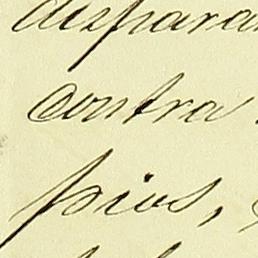 dispara
contra
pios,